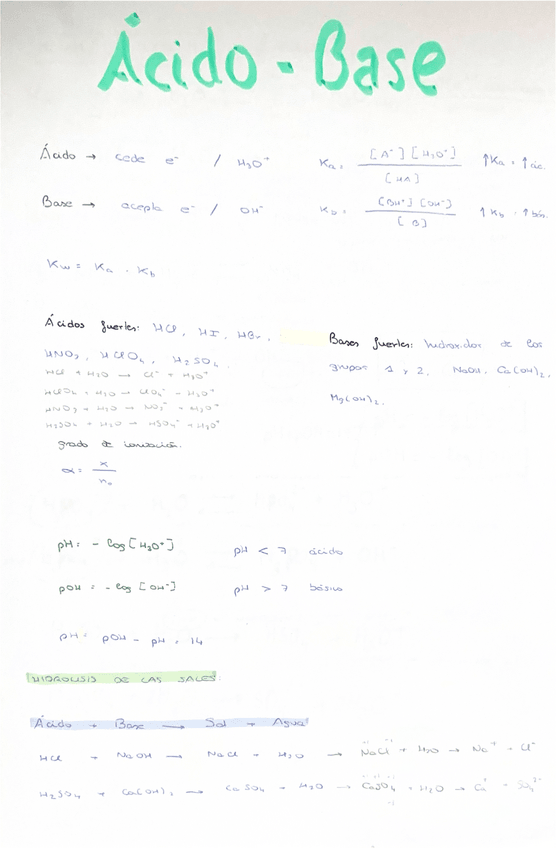 Ácido - Base
Ácido → cede e⁻ / H₃O⁺ Ka = [A⁻] [H₃O⁺] / [HA] ↑Ka · ↑ác.
Base → acepta e⁻ / OH⁻ Kb = [BH⁺] [OH⁻] / [B] ↑Kb · ↑bás.
Kw = Ka . Kb
Ácidos fuertes: HCl, HI, HBr,
HNO₃, HClO₄, H₂SO₄.
HCl + H₂O → Cl⁻ + H₃O⁺
HClO₄ + H₂O → ClO₄⁻ + H₃O⁺
HNO₃ + H₂O → NO₃⁻ + H₃O⁺
H₂SO₄ + H₂O → HSO₄⁻ + H₃O⁺
Bases fuertes: hidroxidos de los
grupos 1 y 2. NaOH, Ca(OH)₂,
Mg(OH)₂.
grado de ionización.
α = x / n₀
pH = - log [H₃O⁺] pH < 7 ácido
pOH = - log [OH⁻] pH > 7 básico
pH = pOH - pH = 14
HIDROLISIS DE LAS SALES:
Ácido + Base → Sal + Agua
HCl + NaOH → NaCl + H₂O → NaCl + H₂O → Na⁺ + Cl⁻
H₂SO₄ + Ca(OH)₂ → CaSO₄ + H₂O → CaSO₄ + H₂O → Ca⁺ + SO₄²⁻